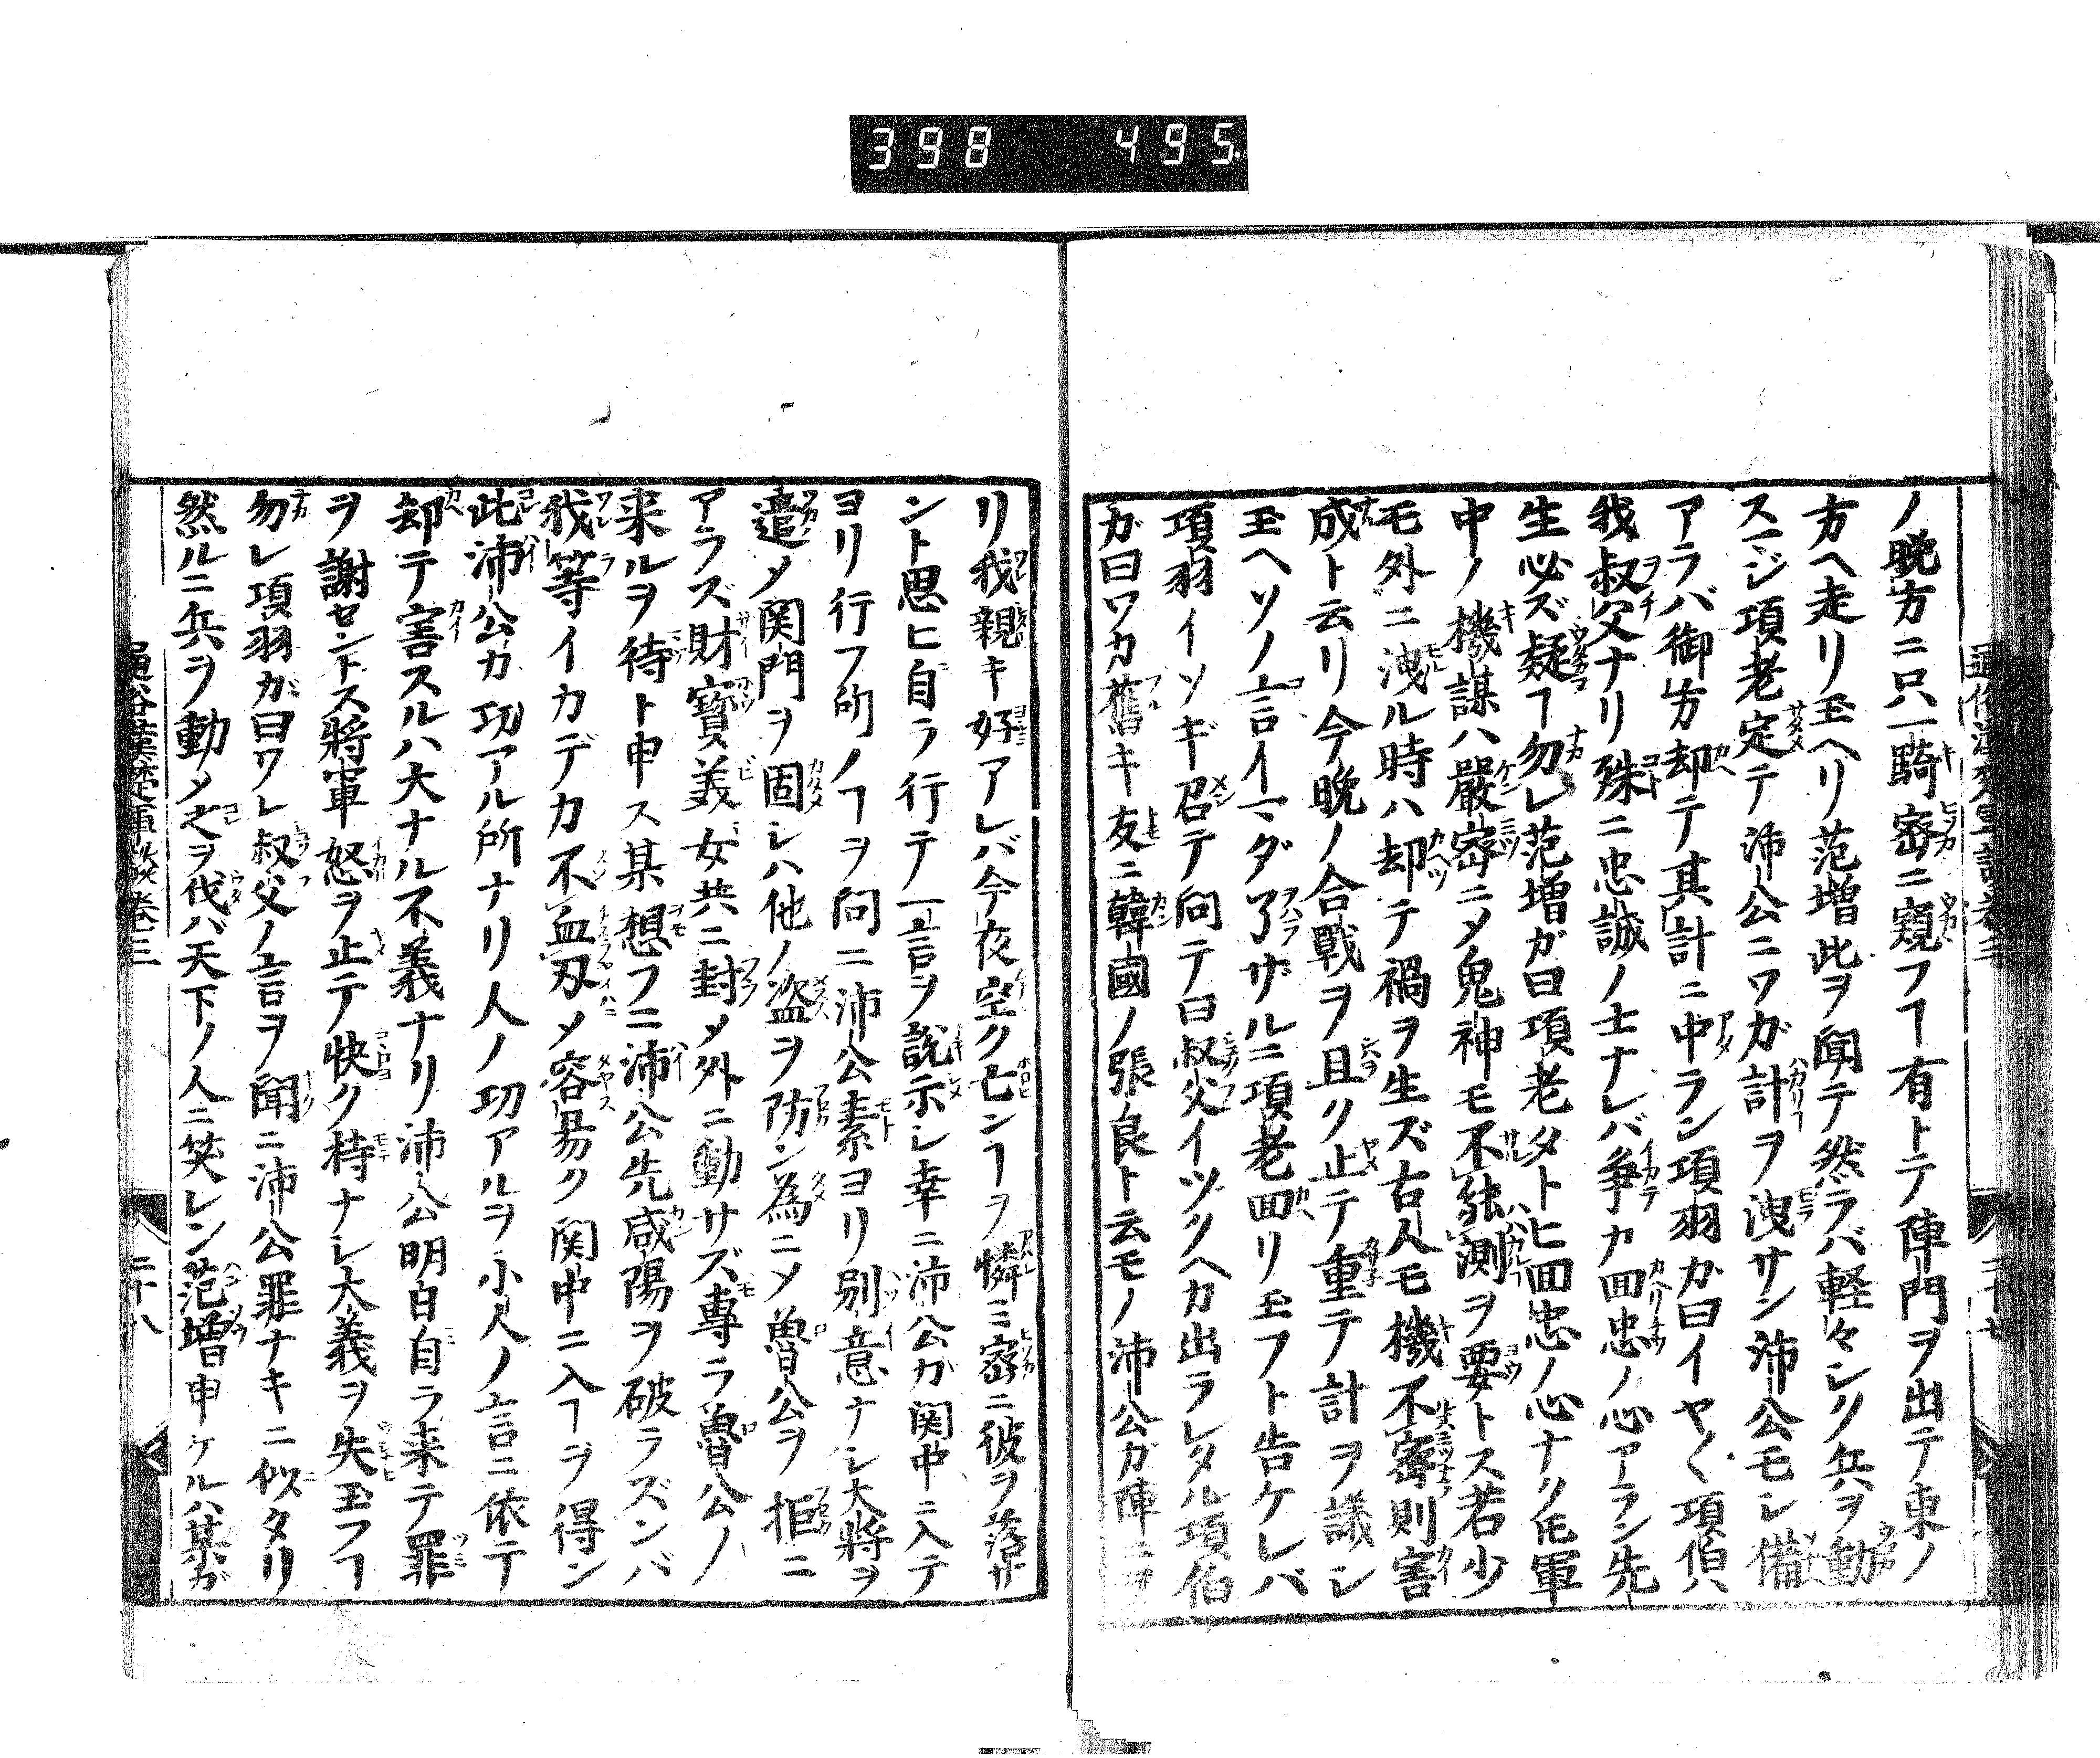 398 495
ノ晩方ニ只一騎密ニ窺フヿ有トテ陣門ヲ出テ東ノ
方ヘ走リ玉ヘリ范増此ヲ聞テ然ラバ軽々シク兵ヲ動
ス ジ項老定テ沛公ニワガ計ヲ洩サン沛公モシ備
アラバ御方却テ其計ニ中ラン項羽カ曰イヤ〱項伯ハ
我叔父ナリ殊ニ忠誠ノ士ナレバ争カ回忠ノ心アラン先
生必ズ疑フヿ勿レ范増ガ曰項老タトヒ回忠ノ心ナク𪜈軍
中ノ機謀ハ嚴密ニメ鬼神モ不能測ヲ要トス若少
モ外ニ洩ル時ハ却テ禍ヲ生ズ古人モ機不密則害
成ト云リ今晩ノ合戰ヲ且ク止テ重テ計ヲ議シ
玉ヘソノ言イマダ了ザルニ項老回リ玉フト告ケレバ
項羽イソギ召テ問テ曰叔父イヅクヘカ出ラレタル項伯
ガ曰ワカ舊キ友ニ韓國ノ張良ト云モノ沛公ガ陣ニ
リ我親キ好アレバ今夜空ク亡ンヿヲ憐ミ密ニ彼ヲ落サ
ント思ヒ自ラ行テ一言ヲ説示シ幸ニ沛公ガ関中ニ入テ
ヨリ行フ所ノヿヲ問ニ沛公素ヨリ別意ナシ大將ヲ
遣メ関門ヲ固シハ他ノ盗ヲ防ン為ニメ魯公ヲ拒ニ
アラズ財寳美女共ニ封メ外ニ動サズ專ラ魯公ノ
来ルヲ待ト申ス某想フニ沛公先咸陽ヲ破ラズンバ
我等イカデカ不血刃メ容易ク関中ニ入ヿヲ得ン
此沛公カ功アル所ナリ人ノ功アルヲ小人ノ言ニ依テ
却テ害スルハ大ナル不義ナリ沛公明日自ラ来テ罪
ヲ謝セントス將軍怒ヲ止テ快ク待ナシ大義ヲ失玉フヿ
勿レ項羽ガ曰ワレ叔父ノ言ヲ聞ニ沛公罪ナキニ似タリ
然ルニ兵ヲ動メ之ヲ伐バ天下ノ人ニ笑レン范増申ケルハ某ガ
通俗漢楚軍談巻三
二十八